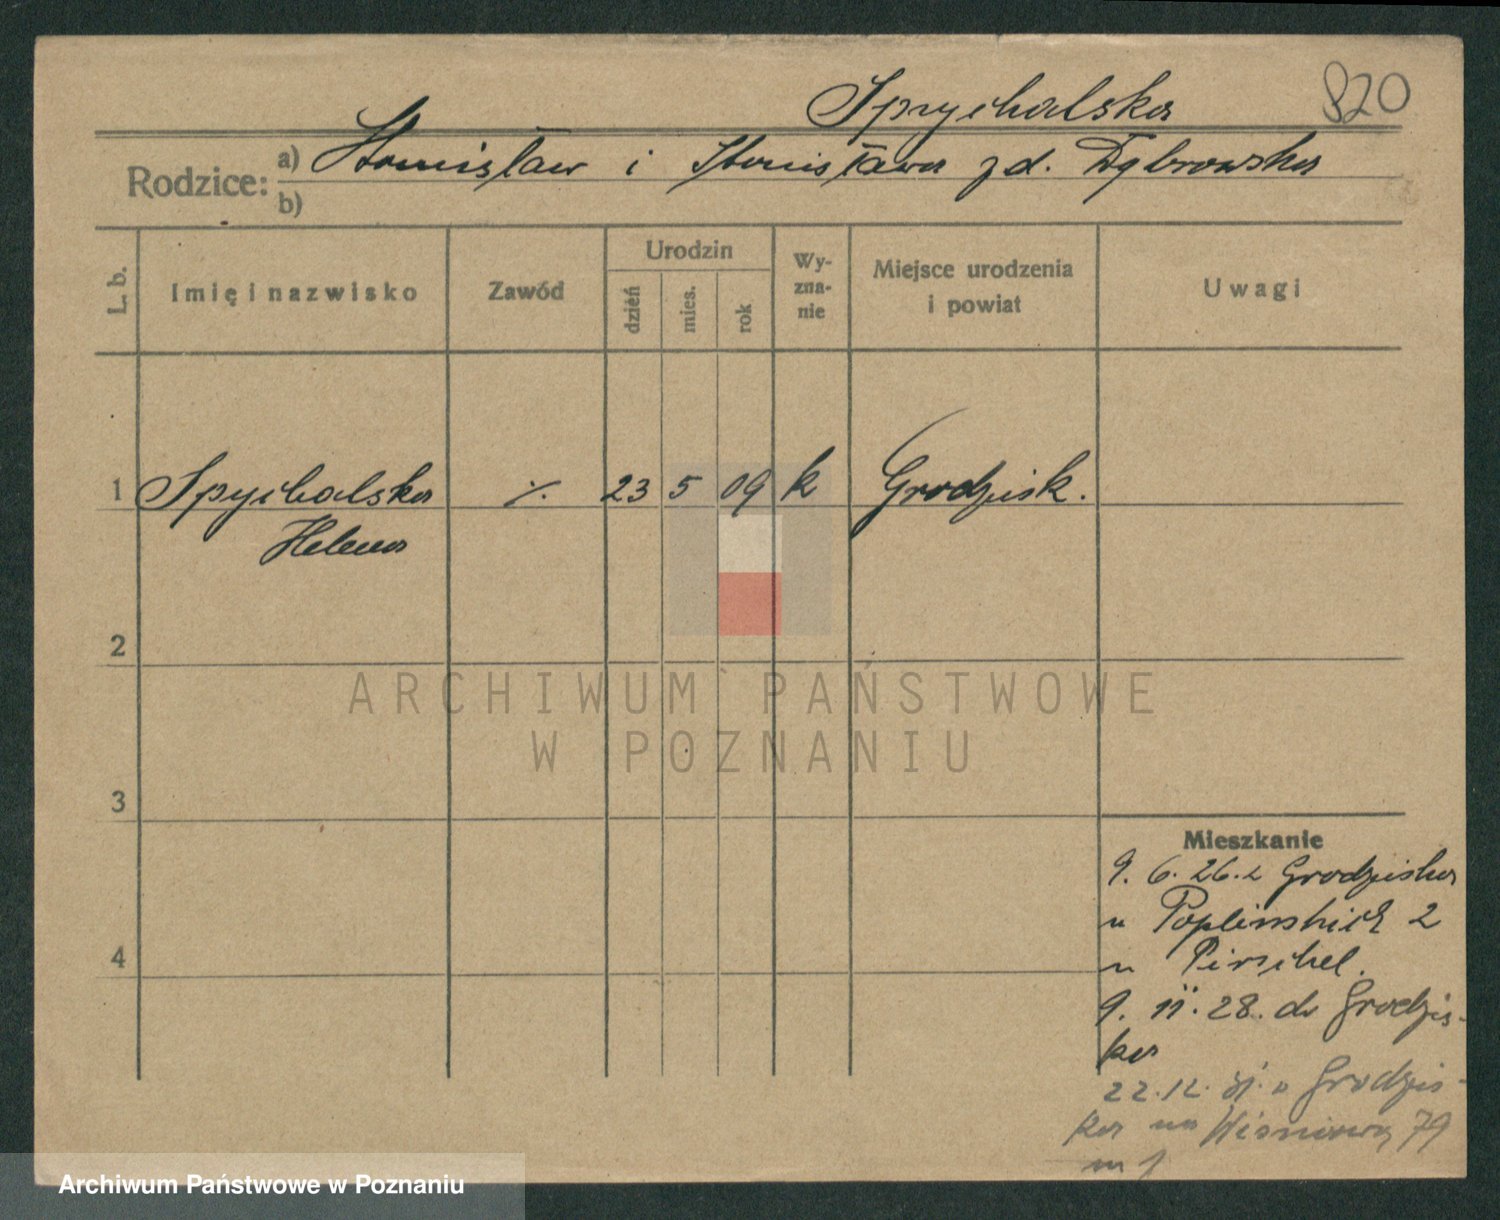 Spychalska 820
Rodzice: a) Stanisław i Stanisława z d. Dąbrowska
b)
L. b. Imię i nazwisko Zawód Urodzin dzień mies. rok Wyznanie Miejsce urodzenia i powiat Uwagi
1 Spychalska ·/. 23 5 09 k Grodzisk.
Helena
2
ARCHIWUM PAŃSTWOWE
W POZNANIU
3
Mieszkanie
9. 6. 26. z Grodziska
u Poplińskich 2
4
u Pirschel.
9. 11. 28. do Grodzis-
ka
22. 12. 31. z Grodzis-
ka na Wiśniową 79
m 1
Archiwum Państwowe w Poznaniu